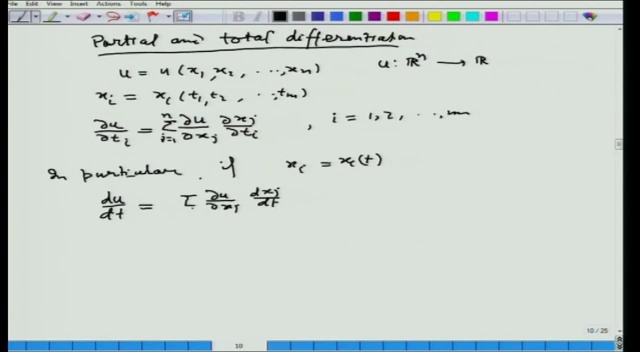 File Edit View Insert Actions Tools Help
Partial and total differentiation
u = u(x₁, x₂, ..., xₙ)    u: ℝⁿ → ℝ
xᵢ = xᵢ(t₁, t₂, ..., tₘ)
∂u/∂tᵢ = Σⁿⱼ₌₁ ∂u/∂xⱼ ∂xⱼ/∂tᵢ , i = 1, 2, ..., m
In particular, if xᵢ = xᵢ(t)
du/dt = Σ ∂u/∂xⱼ dxⱼ/dt
10 / 25
10